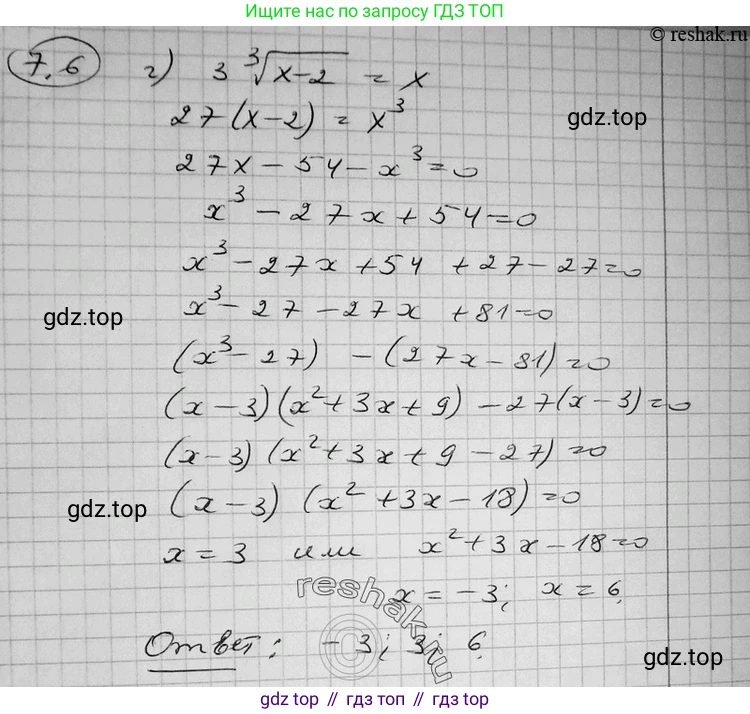 Ищите нас по запросу ГДЗ ТОП
© reshak.ru
7.6 г) 3∛(x-2) = x
27(x-2) = x³
gdz.top
27x - 54 - x³ = 0
x³ - 27x + 54 = 0
x³ - 27x + 54 + 27 - 27 = 0
x³ - 27 - 27x + 81 = 0
gdz.top
(x³ - 27) - (27x - 81) = 0
(x - 3)(x² + 3x + 9) - 27(x - 3) = 0
(x - 3)(x² + 3x + 9 - 27) = 0
(x - 3)(x² + 3x - 18) = 0
gdz.top
x = 3 или x² + 3x - 18 = 0
reshak.ru
x = -3; x = 6.
Ответ: -3; 3; 6.
gdz.top
gdz.top // гдз топ // gdz.top // гдз топ // gdz.top